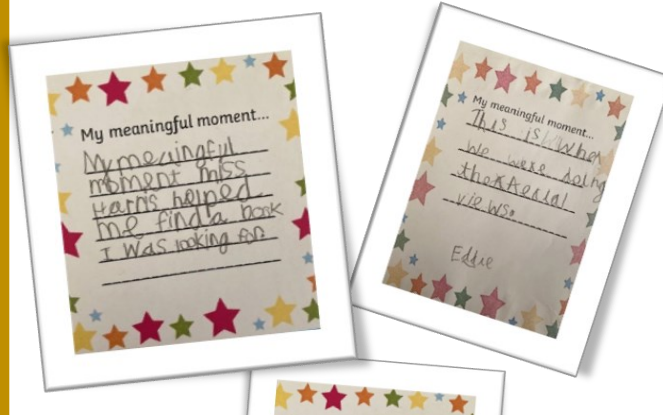 My meaningful moment...
My meaingful
moment miss
Harris helped
me find a book
I was looking for.
My meaningful moment...
This is when
we were doing
the Aerial
views.
Eddie